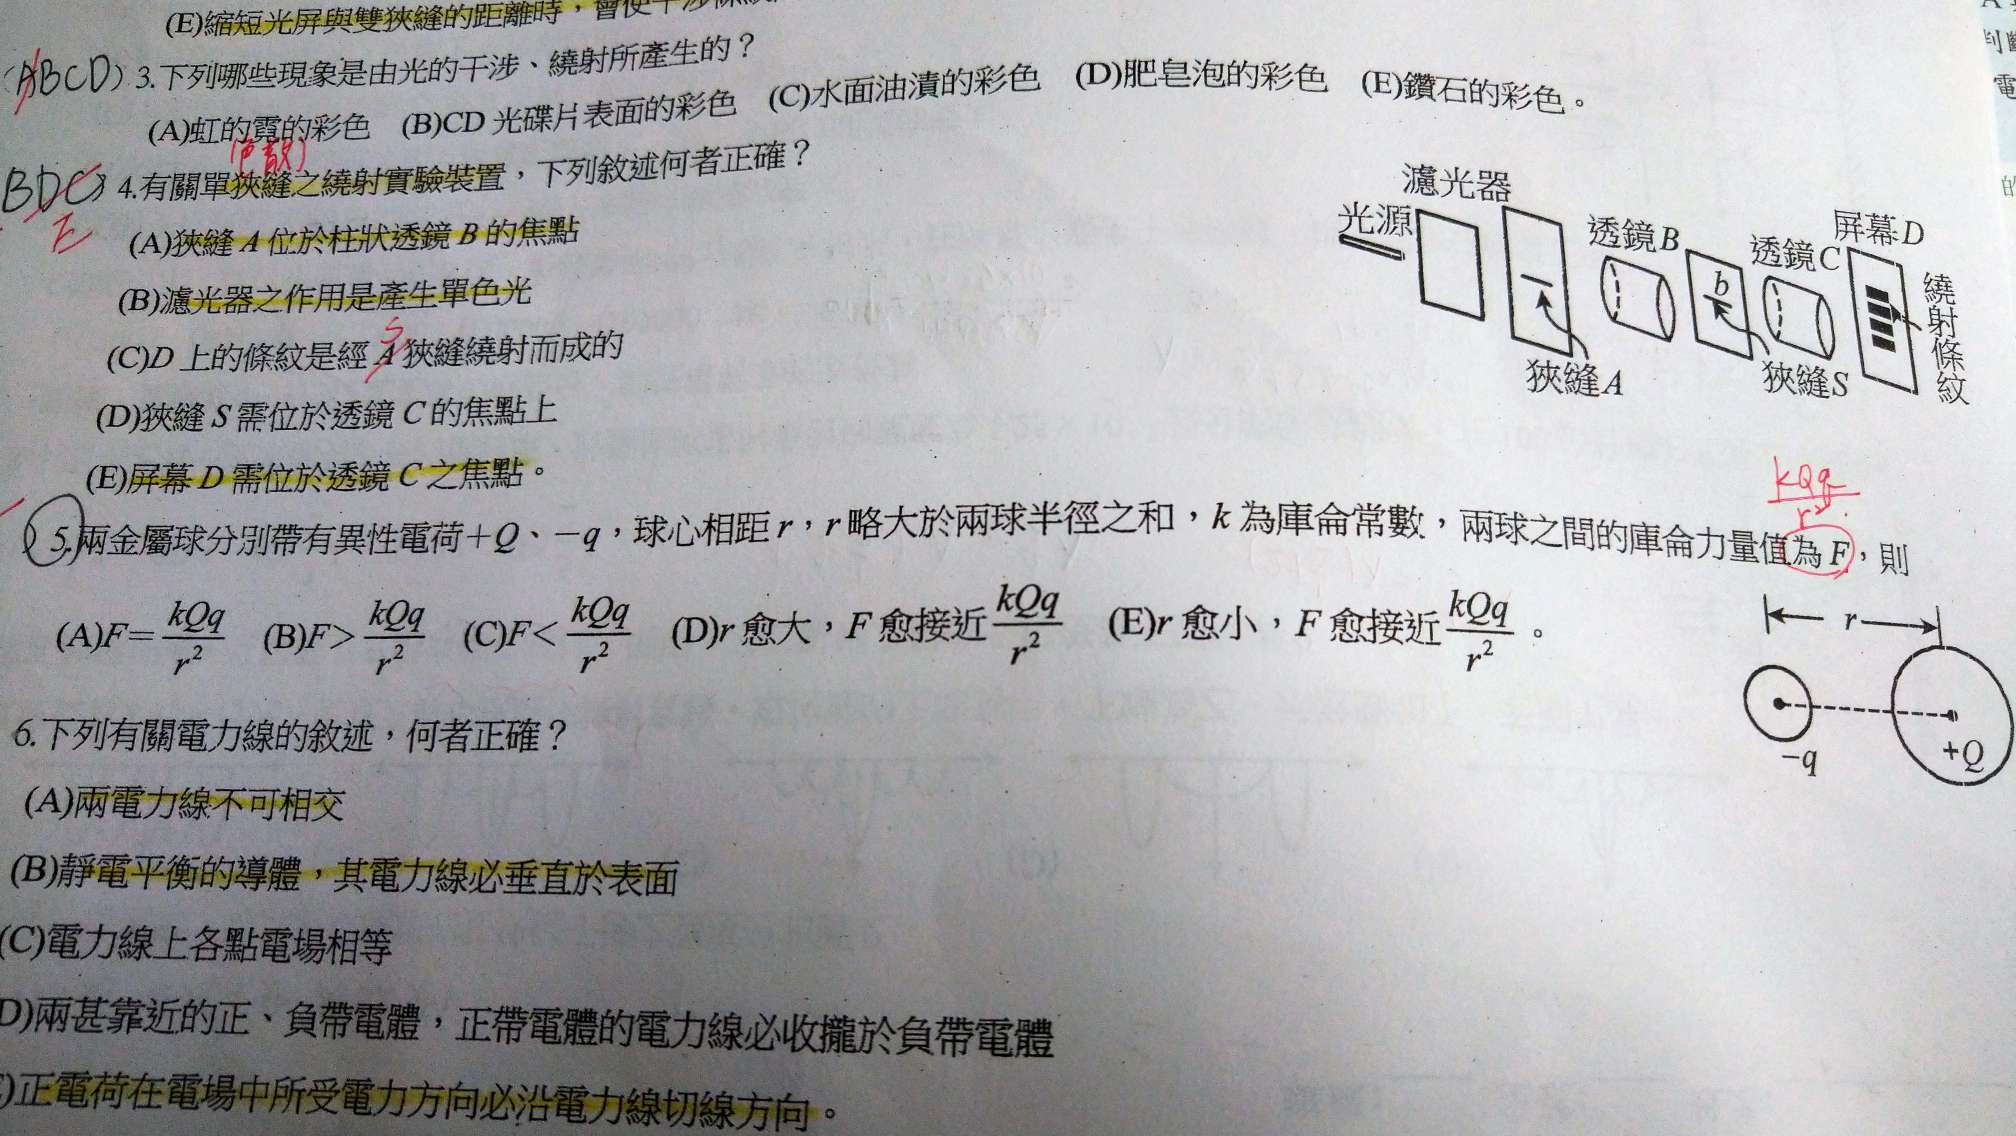 (E)縮短光屏與雙狹縫的距離時，會使干涉條紋
(ABCD) 3.下列哪些現象是由光的干涉、繞射所產生的？
(A)虹的霓的彩色 (B)CD 光碟片表面的彩色 (C)水面油漬的彩色 (D)肥皂泡的彩色 (E)鑽石的彩色。
(色散)
BDC) 4.有關單狹縫之繞射實驗裝置，下列敘述何者正確？
E
(A)狹縫 A 位於柱狀透鏡 B 的焦點
(B)濾光器之作用是產生單色光
S
(C)D 上的條紋是經 A 狹縫繞射而成的
(D)狹縫 S 需位於透鏡 C 的焦點上
(E)屏幕 D 需位於透鏡 C 之焦點。
光源
濾光器
狹縫A
透鏡B
b
狹縫S
透鏡C
屏幕D
繞射條紋
) 5.兩金屬球分別帶有異性電荷＋Q、－q，球心相距 r，r 略大於兩球半徑之和，k 為庫侖常數，兩球之間的庫侖力量值為 F，則
kQq
r²
(A)F=kQq/r² (B)F>kQq/r² (C)F<kQq/r² (D)r 愈大，F 愈接近kQq/r² (E)r 愈小，F 愈接近kQq/r²。
r
－q
+Q
6.下列有關電力線的敘述，何者正確？
(A)兩電力線不可相交
(B)靜電平衡的導體，其電力線必垂直於表面
(C)電力線上各點電場相等
D)兩甚靠近的正、負帶電體，正帶電體的電力線必收攏於負帶電體
)正電荷在電場中所受電力方向必沿電力線切線方向。
判斷
電
的